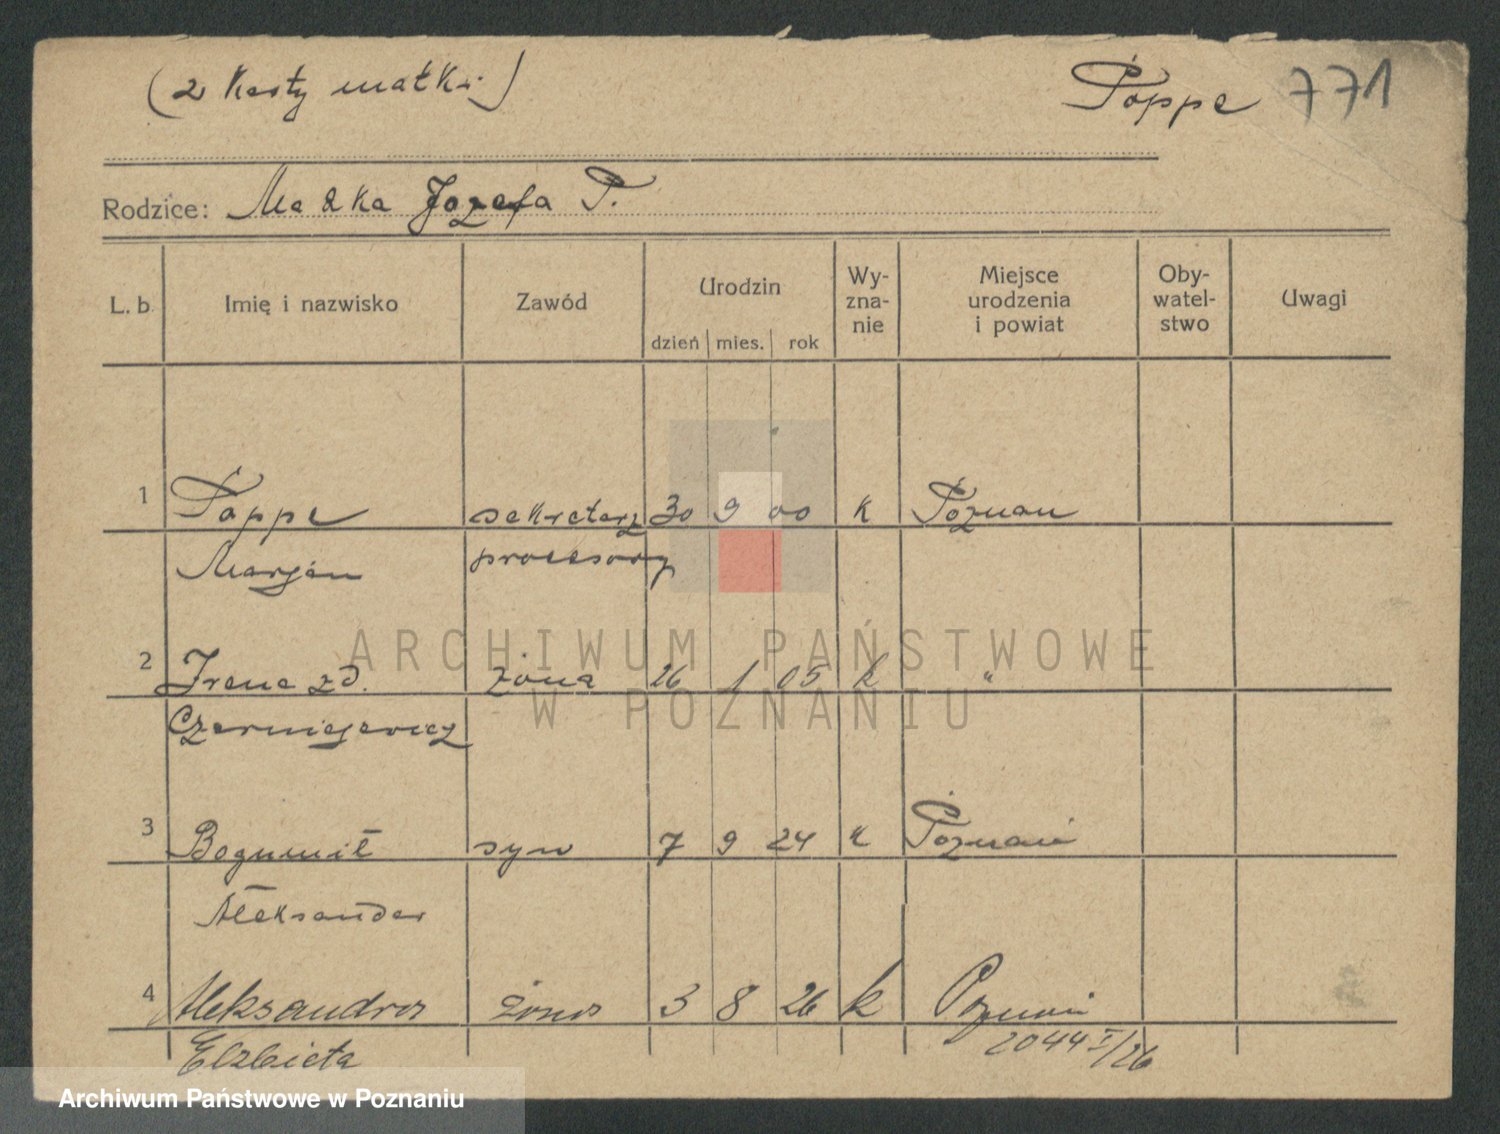 (2 Karty matki)
Poppe 771
Rodzice: Matka Józefa P.
L. b. Imię i nazwisko Zawód Urodzin dzień mies. rok Wy-zna-nie Miejsce urodzenia i powiat Oby-watel-stwo Uwagi
1 Poppe sekretarz 30 9 00 k Poznań
Marjan procesowy
2 Irena zd. żona 26 1 05 k "
Czerniejewicz
3 Bogumił syn 7 9 24 k Poznań
Aleksander
4 Aleksandra 3 8 26 k Poznań
Elżbieta 2044 I/26
ARCHIWUM PAŃSTWOWE
W POZNANIU
Archiwum Państwowe w Poznaniu